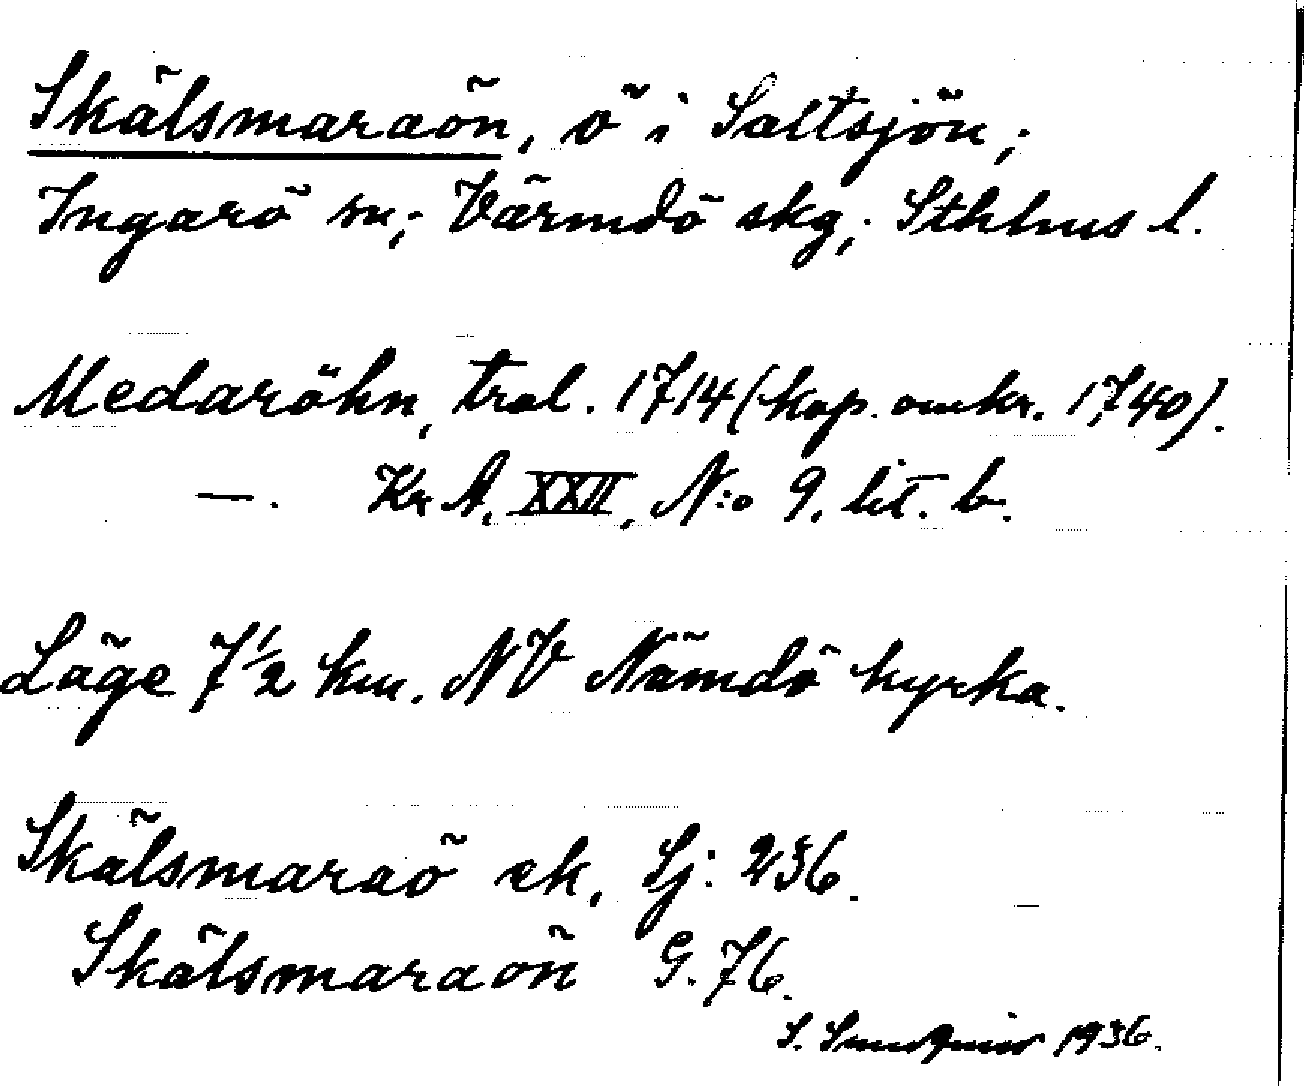 Skälsmaraön, ö i Saltsjön;
Ingarö sn; Värmdö skg; Sthlms l.
Medaröhn, tral. 1714 (kop. omkr. 1740).
—. Kr A. XXII, N:o 9. lit. b.
Läge 7 1/2 km. NV Nämdö kyrka.
Skälsmaraö ek. Sj: 236.
Skälsmaraön G. 76.
S. 1936.